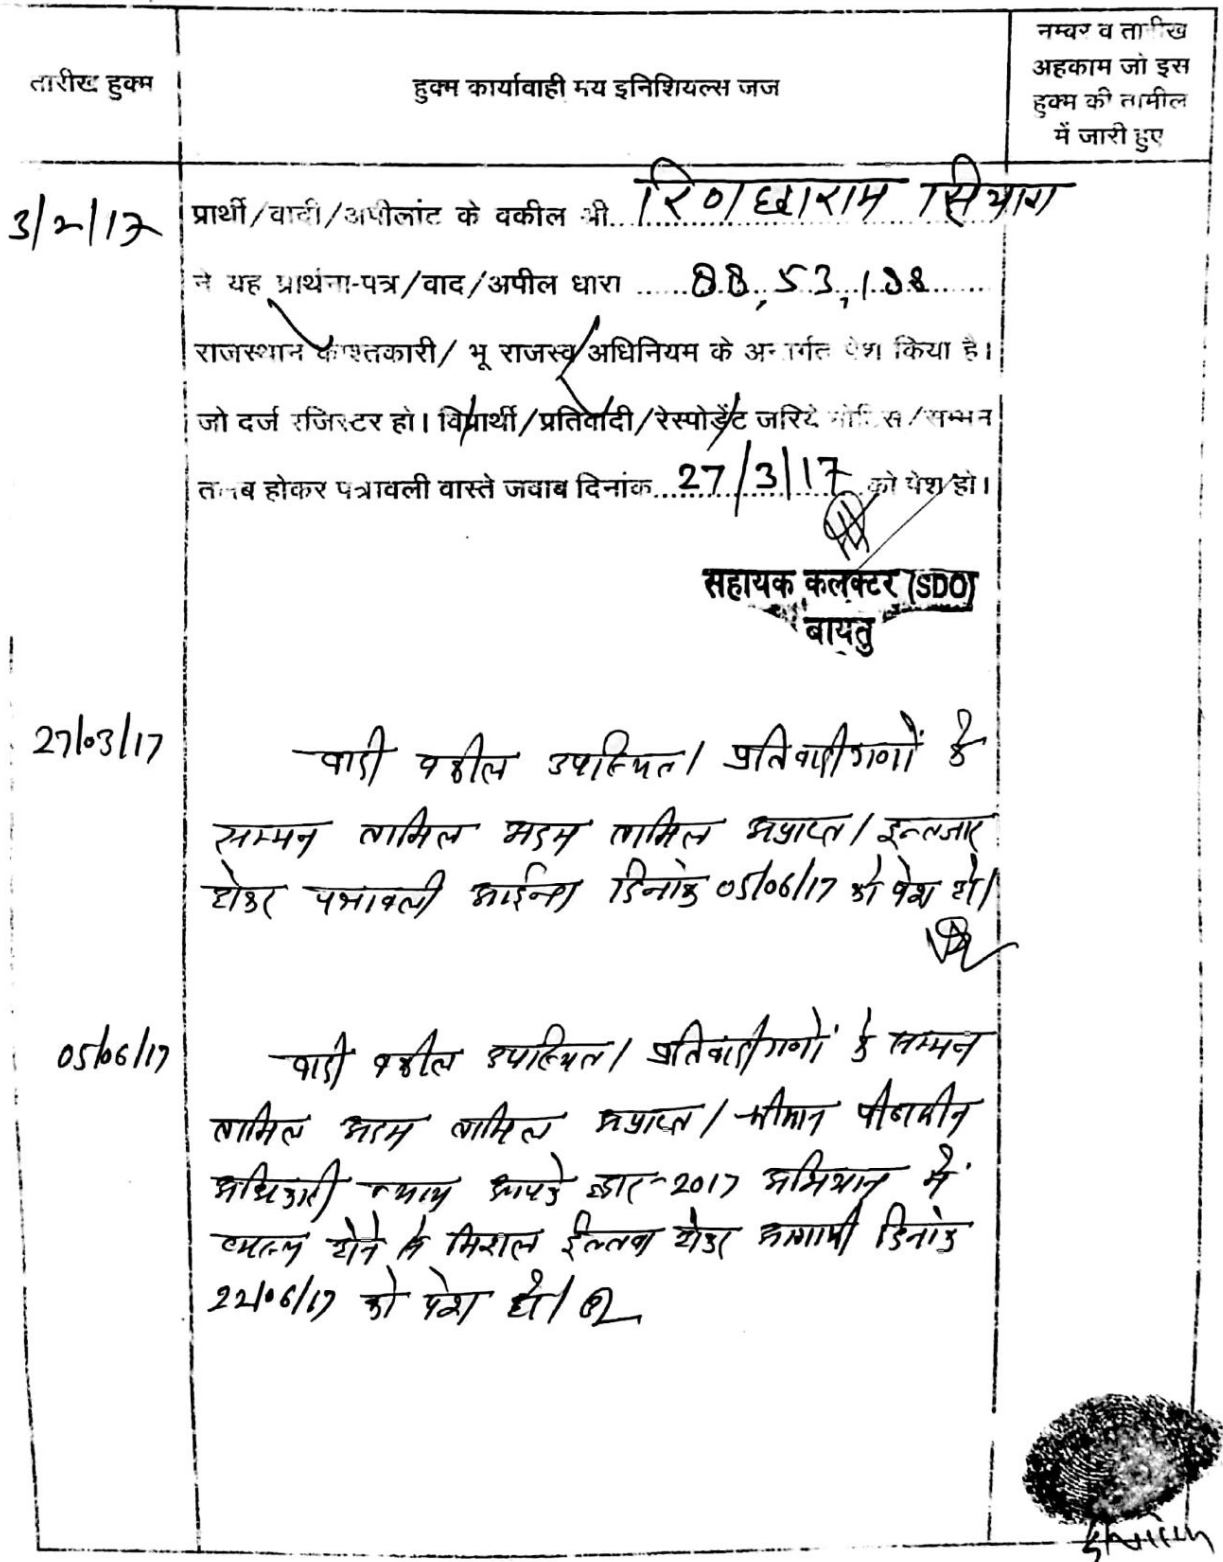 तारीख हुक्म
हुक्म कार्यावाही मय इनिशियल्स जज
नम्बर व तारीख
अहकाम जो इस
हुक्म की तामील
में जारी हुए
3/2/17
प्रार्थी/वादी/अपीलांट के वकील श्री रिणछाराम सियाग
ने यह प्राथना-पत्र/वाद/अपील धारा 88, 53, 188
राजस्थान काश्तकारी/ भू राजस्व अधिनियम के अन्तर्गत पेश किया है।
जो दर्ज रजिस्टर हो। विप्रार्थी/प्रतिवादी/रेस्पोडेंट जरिये नोटिस/सम्मन
तलब होकर पत्रावली वास्ते जवाब दिनांक 27/3/17 को पेश हो।
सहायक कलक्टर (SDO)
बायतु
27/03/17
वादी वकील उपस्थित। प्रतिवादीगणों के
सम्मन तामिल अदम तामिल अप्राप्त। इन्तजार
होकर पत्रावली आईन्दा दिनांक 05/06/17 को पेश हो।
05/06/17
वादी वकील उपस्थित। प्रतिवादीगणों के सम्मन
तामिल अदम तामिल अप्राप्त। श्रीमान पीठासीन
अधिकारी न्याय आपके द्वार-2017 अभियान में
व्यस्त होने से मिशल ईल्तवा होकर आगामी दिनांक
22/06/17 को पेश हो।